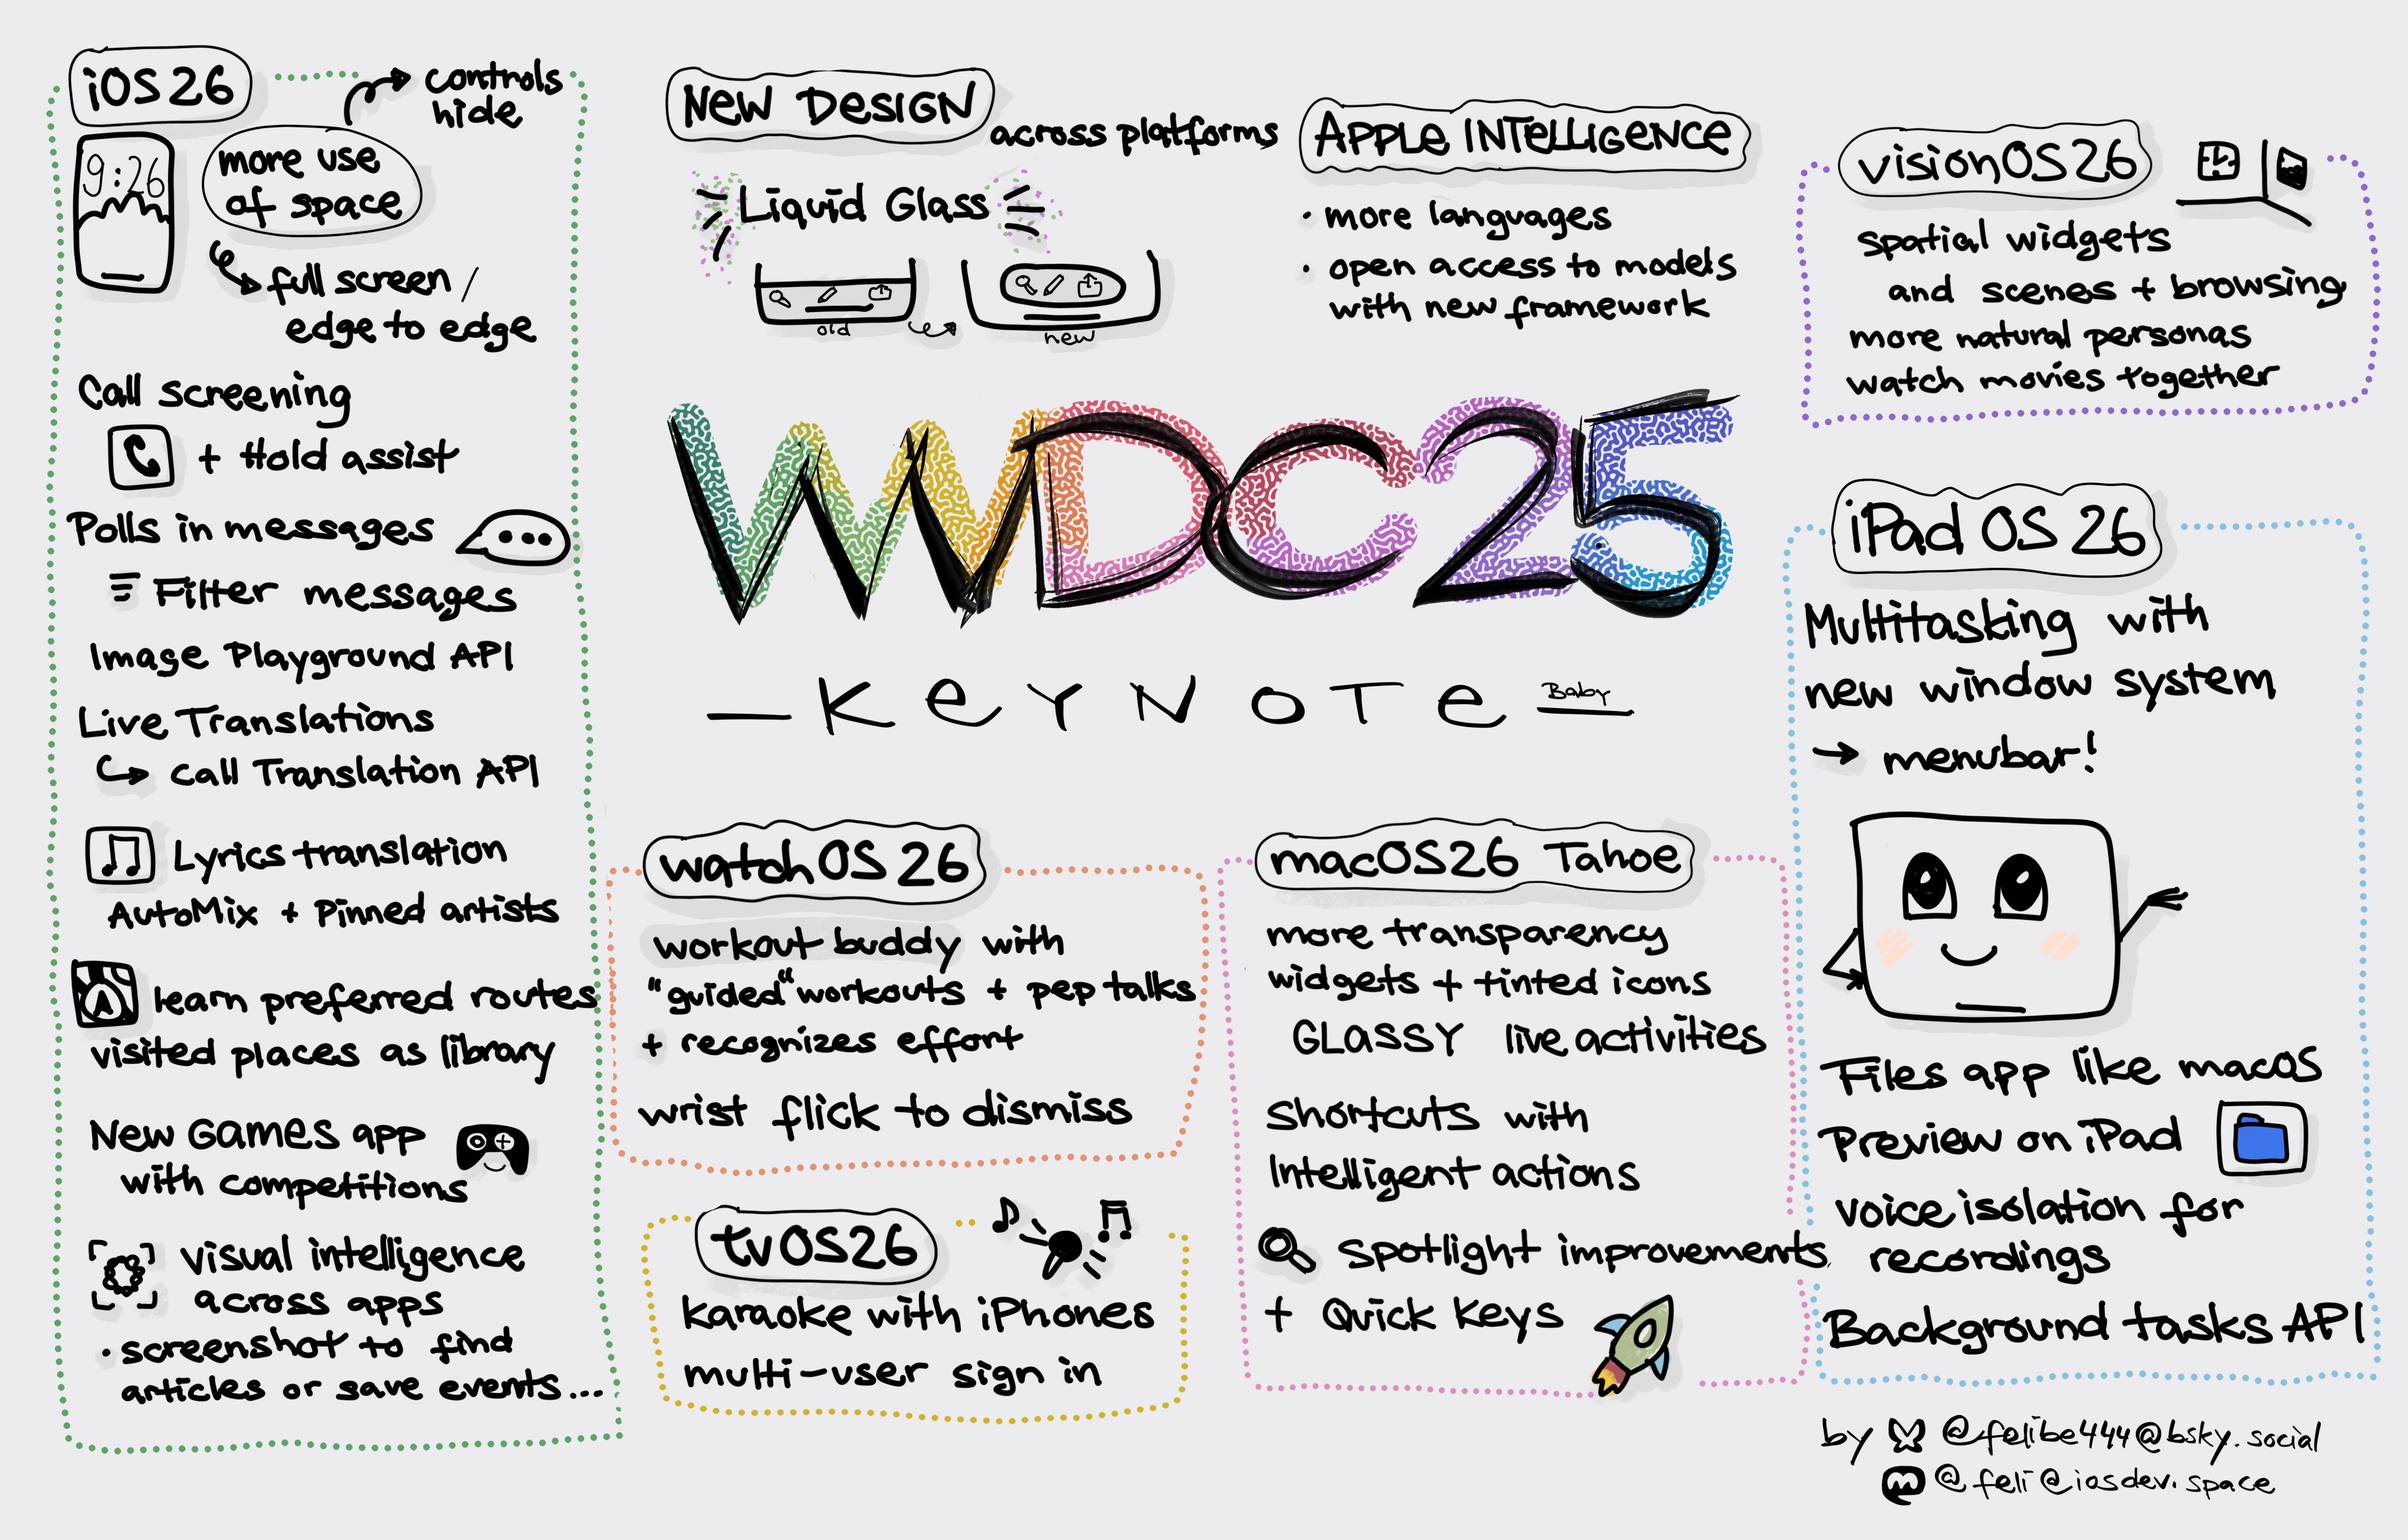 iOS 26
controls
hide
9:26
more use
of space
full screen /
edge to edge
Call screening
+ Hold assist
Polls in messages
Filter messages
Image Playground API
Live Translations
Call Translation API
Lyrics translation
AutoMix + Pinned artists
learn preferred routes
visited places as library
New GAMES app
with competitions
visual intelligence
across apps
• screenshot to find
articles or save events...
New Design
across platforms
Liquid Glass
old
new
Apple Intelligence
• more languages
• open access to models
with new framework
WWDC25
— KEYNOTE —
Baby
watchOS 26
workout buddy with
"guided" workouts + pep talks
+ recognizes effort
wrist flick to dismiss
tvOS26
karaoke with iPhones
multi-user sign in
macOS26 Tahoe
more transparency
widgets + tinted icons
GLASSY live activities
Shortcuts with
Intelligent actions
Spotlight improvements
+ Quick Keys
visionOS26
spatial widgets
and scenes + browsing
more natural personas
watch movies together
iPad OS 26
Multitasking with
new window system
→ menubar!
Files app like macOS
Preview on iPad
voice isolation for
recordings
Background tasks API
by @felibe444@bsky.social
@feli@iosdev.space